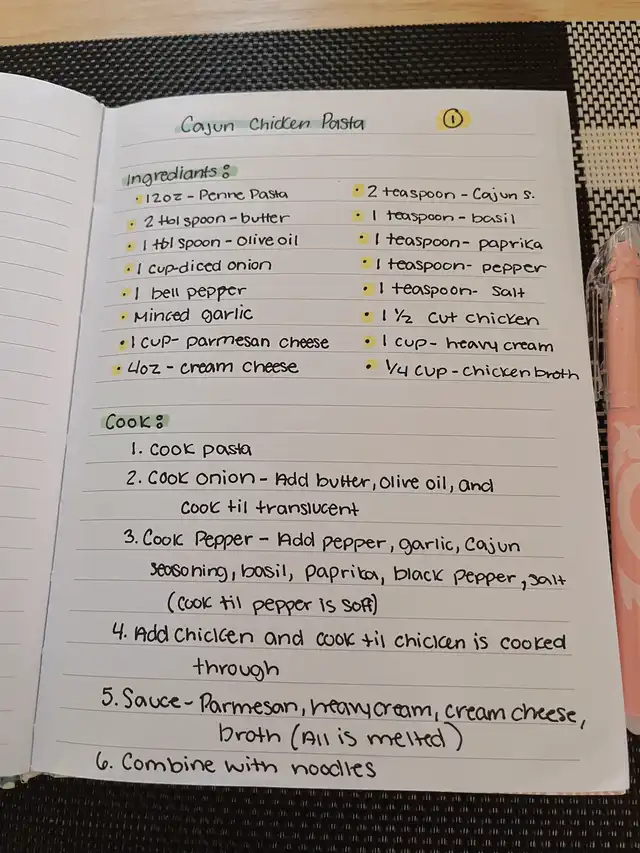 Cajun Chicken Pasta
1
Ingrediants:
• 12oz - Penne Pasta
• 2 tbl spoon - butter
• 1 tbl spoon - olive oil
• 1 cup-diced onion
• 1 bell pepper
• Minced garlic
• 1 cup- parmesan cheese
• 4oz - cream cheese
• 2 teaspoon - Cajun s.
• 1 teaspoon - basil
• 1 teaspoon- paprika
• 1 teaspoon- pepper
• 1 teaspoon- salt
• 1 1/2 cut chicken
• 1 cup- heavy cream
• 1/4 cup - chicken broth
Cook:
1. Cook pasta
2. Cook onion - Add butter, olive oil, and
cook til translucent
3. Cook Pepper - Add pepper, garlic, Cajun
seasoning, basil, paprika, black pepper, salt
(cook til pepper is soft)
4. Add chicken and cook til chicken is cooked
through
5. Sauce - Parmesan, heavy cream, cream cheese,
broth (All is melted)
6. Combine with noodles